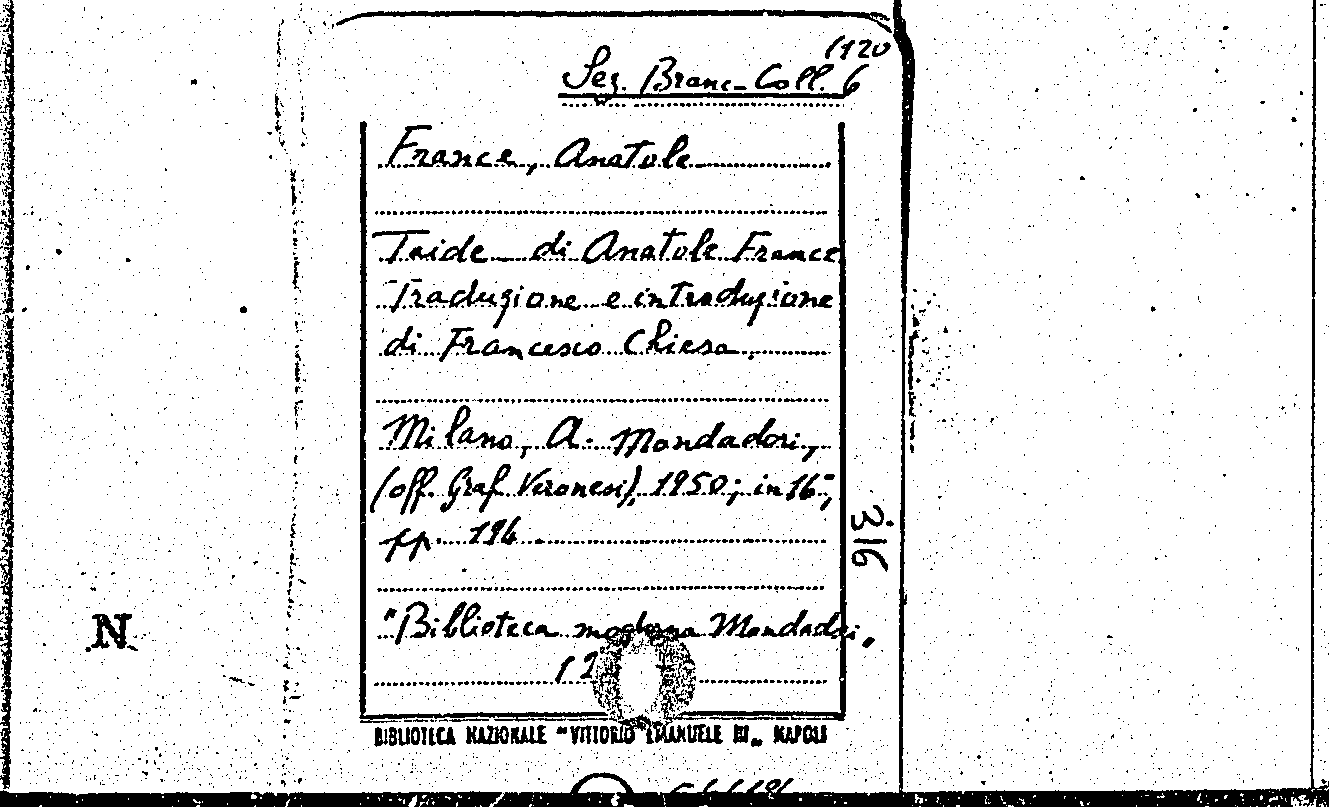 (120
Sez. Branc. Coll. 6
France, Anatole
Taide di Anatole France
Traduzione e introduzione
di Francesco Chiesa.
Milano, A. Mondadori,
(off. Graf. Veronesi), 1950; in 16°;
pp. 196.
316
"Biblioteca moderna Mondadori,"
N
BIBLIOTECA NAZIONALE "VITTORIO EMANUELE III" NAPOLI